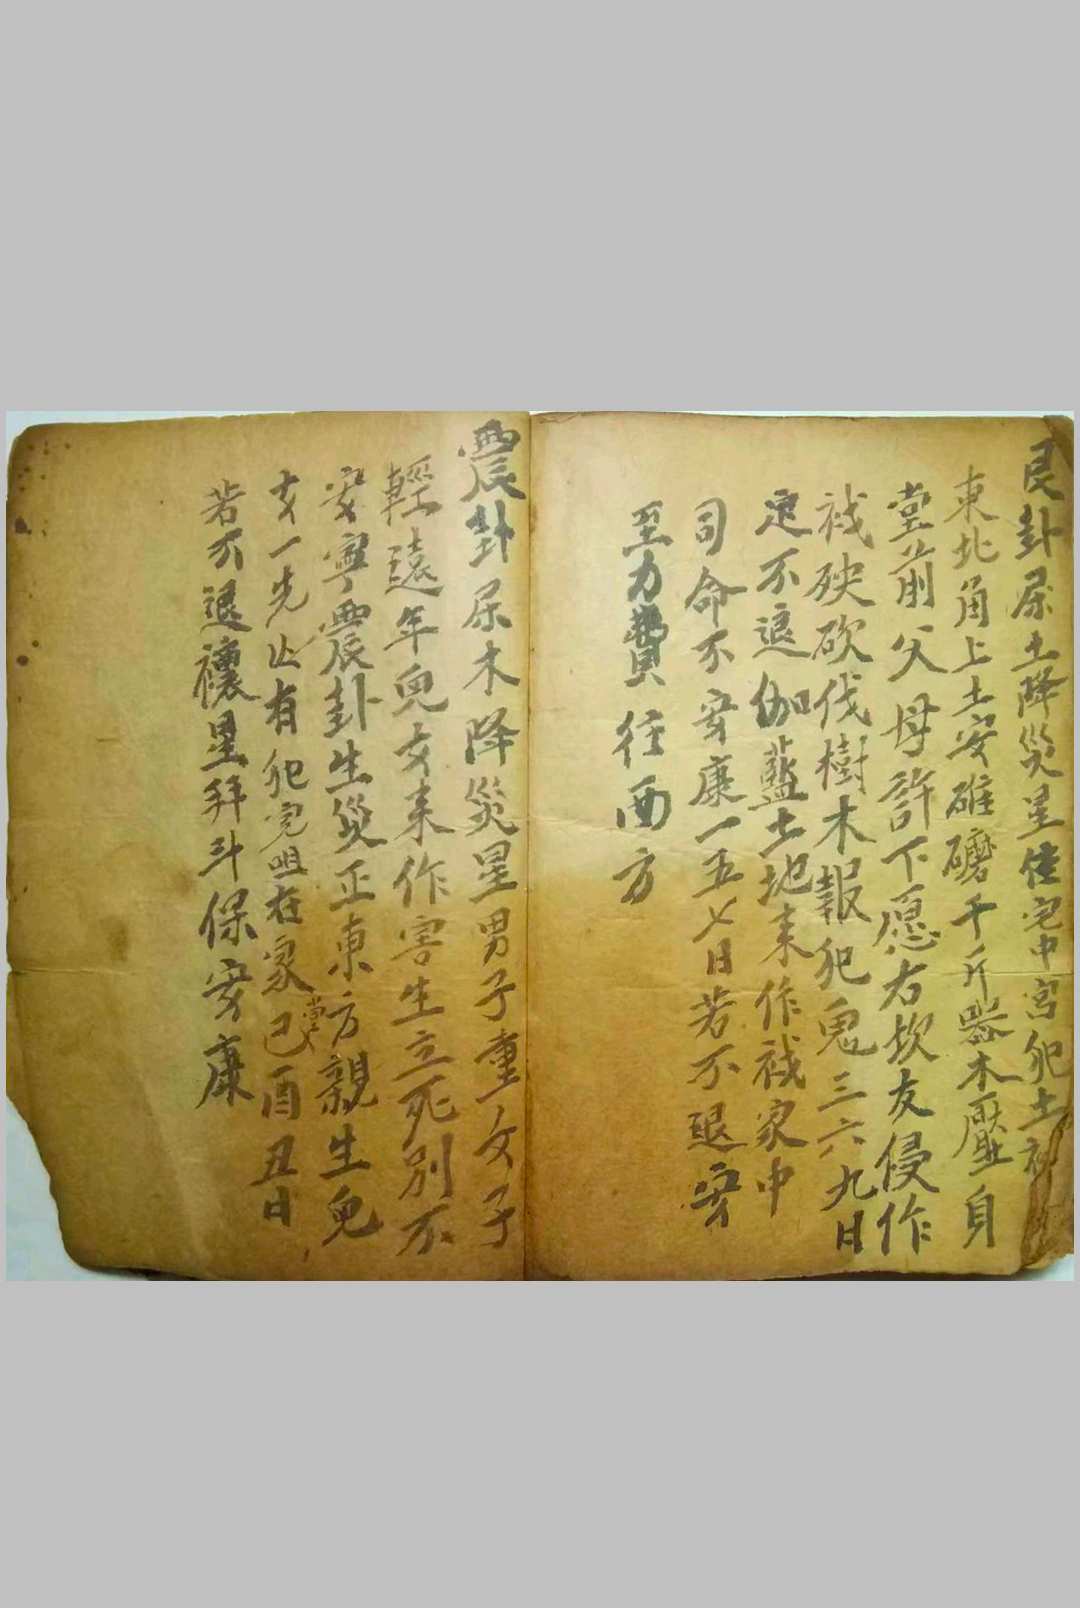 艮卦屬土降災星住宅中宮犯土神
東北角上土安碓磨千斤器木壓身
堂前父母許下愿右坎友侵作
祅殃砍伐樹木報犯鬼三六九日
定不退伽藍土地来作祅家中
司命不安康一五七日若不退安
至力費往西方
震卦屬木降災星男子重女子
輕遠年兒女来作害生立死別不
安寧震卦生災正東方親生兒
女一先亾有犯完咀在家堂巳酉丑日
若不退禳星拜斗保安康